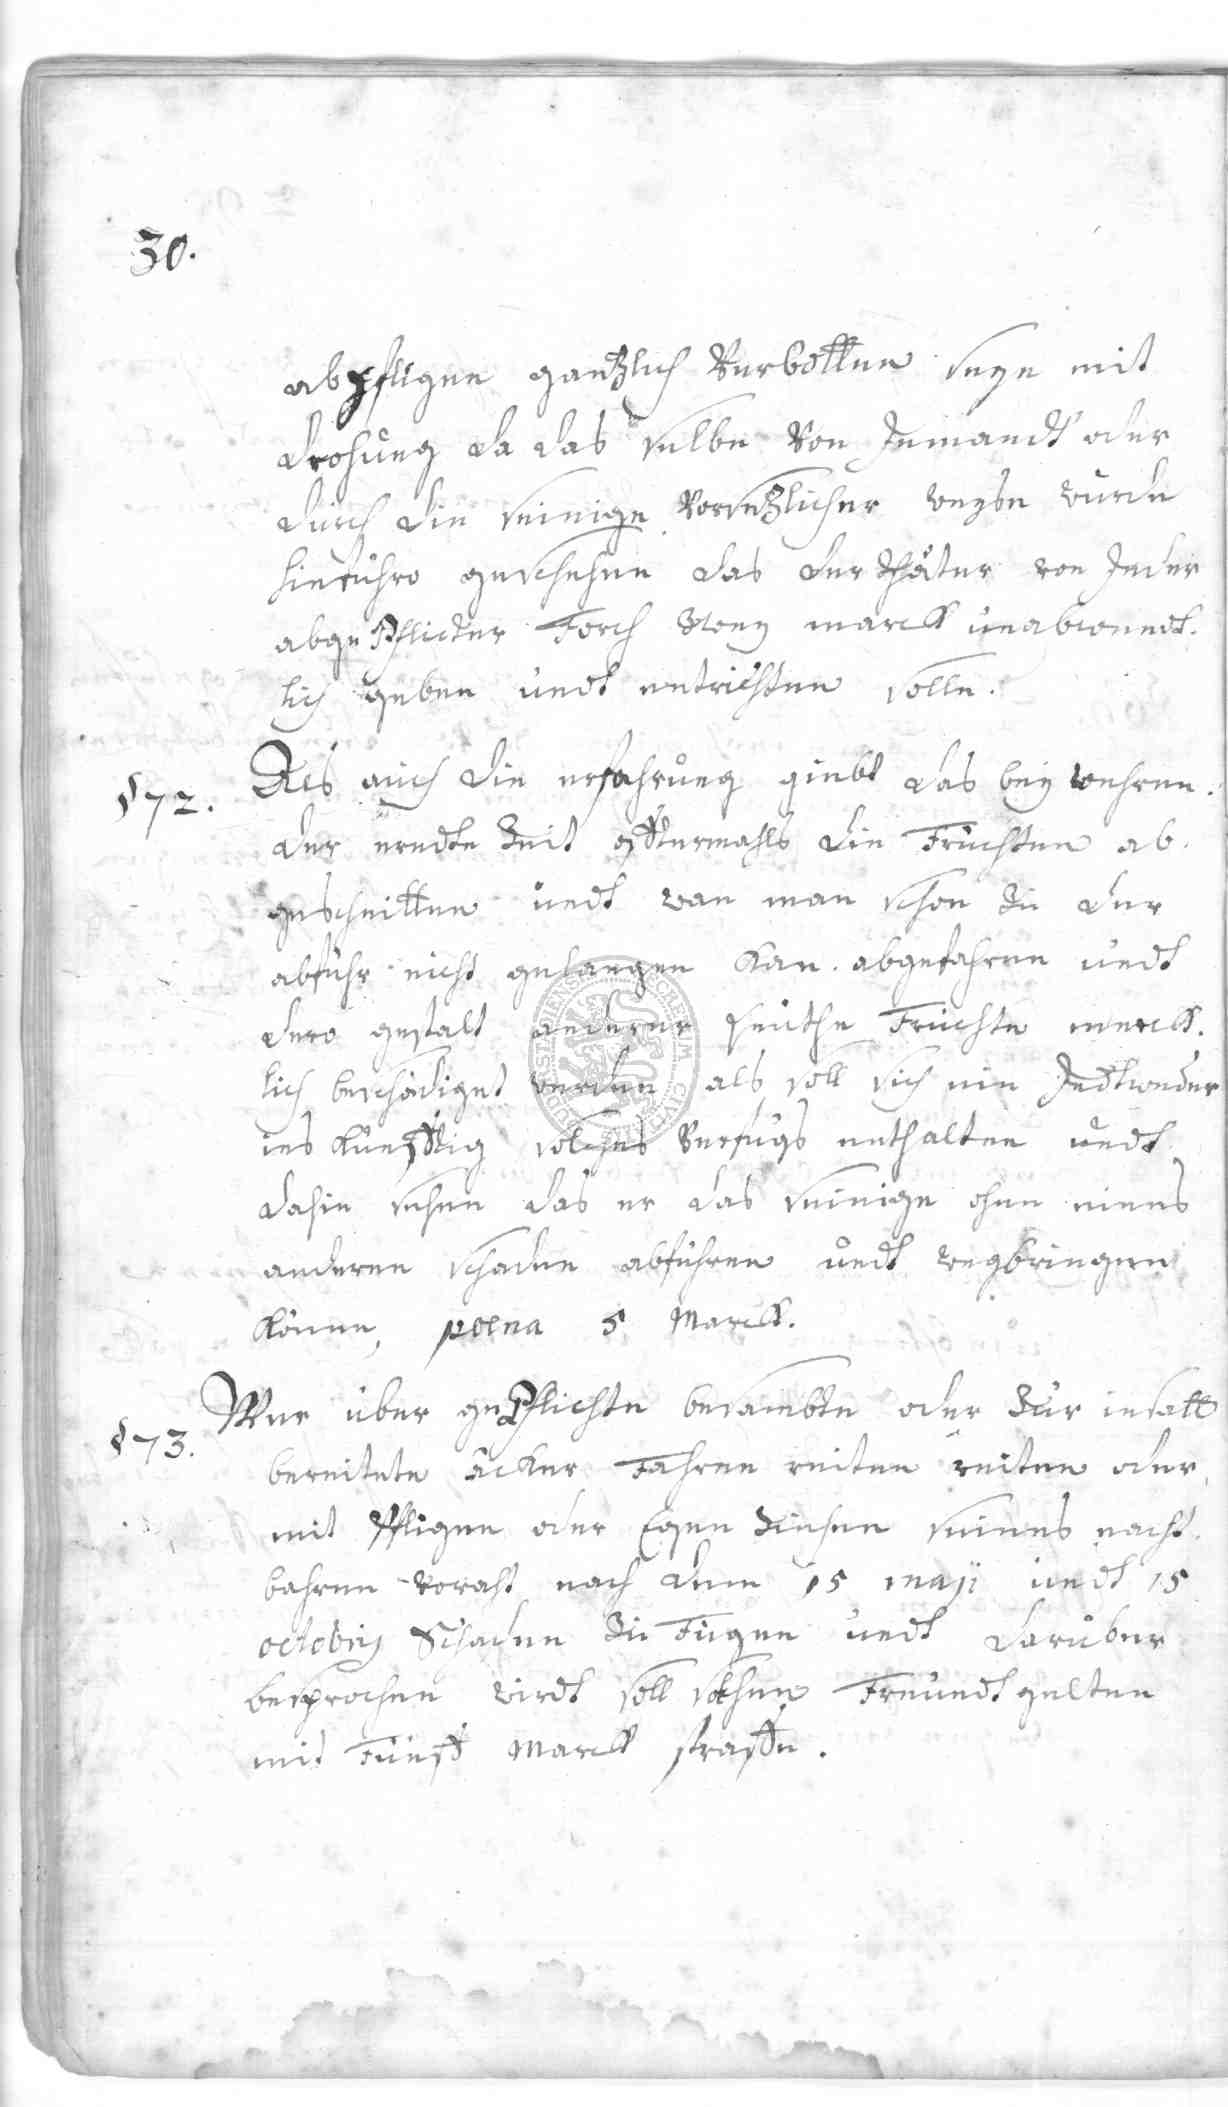 30.
abpfligen gantzlich Verbotten seye mit
drohung da das selbe Von Jemandt oder
durch die seinige Vorsetzlicher weyse würde
hinführo geschehen das der thäter von Jeder
abgepflickter Forch zwey marck unabwendt-
lich geben undt entrichten solle.
§ 72. Als auch die erfahrung giebt das bey wehren-
der erndte Zeit offtermahls die Früchten ab-
geschnitten undt wan man schon zu der
abfuhr nicht gelangen kan. abgefahren undt
dero gestalt anderer leuthe Früchte merck-
lich beschädiget werden als soll sich ein Jedtweder
ins künfftig solches Verfugs enthalten undt
dahin sehen das er das seinige ohne eines
anderen schaden abführen undt wegbringen
könne, poena 5 Marck.
§ 73. Wer über gepflichte besambte oder zur insatt
bereitete äcker Fahren reiten reiten oder
mit Pfligen oder Egen ziehen seines nacht-
bahren voraht nach dem 15 maji undt 15
octobris Schaden zu Fügen undt darüber
besprochen wirdt soll sothem Freundt gelten
mit Fünff Marck straffe.